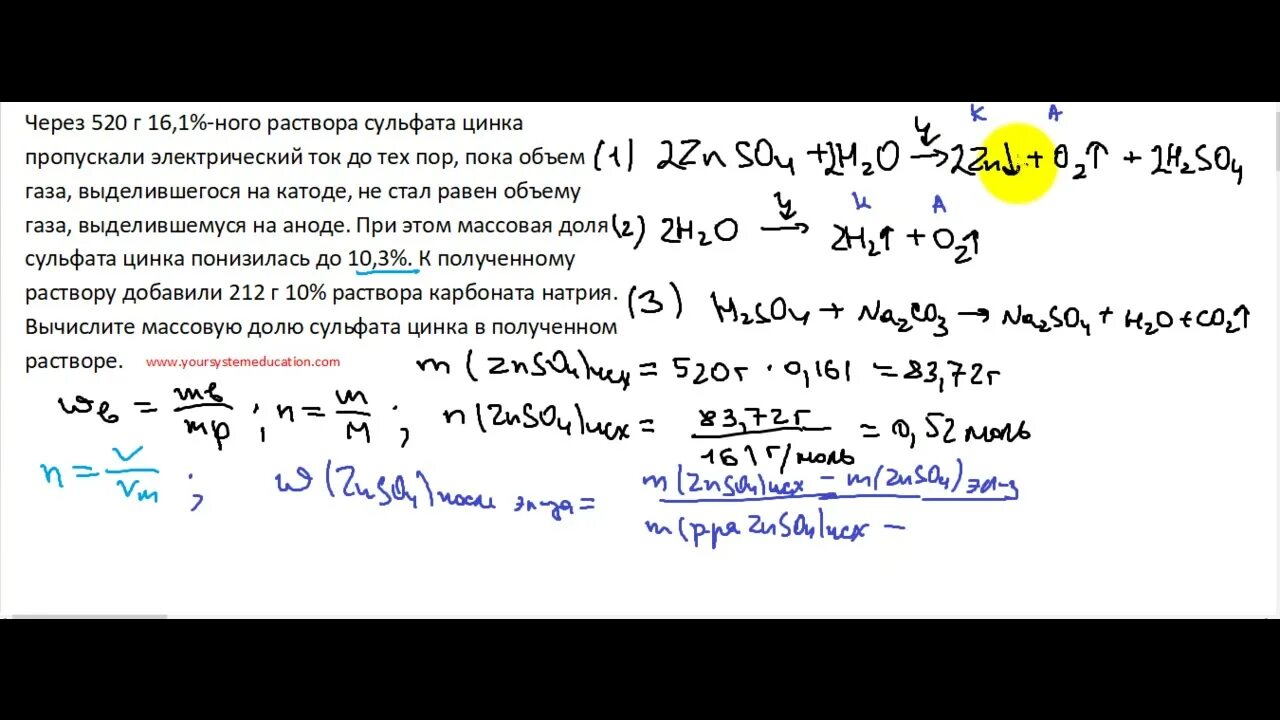 Через 520 г 16,1%-ного раствора сульфата цинка
пропускали электрический ток до тех пор, пока объем
газа, выделившегося на катоде, не стал равен объему
газа, выделившемуся на аноде. При этом массовая доля
сульфата цинка понизилась до 10,3%. К полученному
раствору добавили 212 г 10% раствора карбоната натрия.
Вычислите массовую долю сульфата цинка в полученном
растворе. www.yoursystemeducation.com
К А
(1) 2ZnSO₄ + 2H₂O → 2Zn↓ + O₂↑ + 2H₂SO₄
К А
(2) 2H₂O → 2H₂↑ + O₂↑
(3) H₂SO₄ + Na₂CO₃ → Na₂SO₄ + H₂O + CO₂↑
m(ZnSO₄)исх = 520г · 0,161 = 83,72г
wв = mв/mр ; n = m/M ; n(ZnSO₄)исх = 83,72г/161г/моль = 0,52моль
n = V/Vm ; w(ZnSO₄)после эл-за = m(ZnSO₄)исх − m(ZnSO₄)эл-з
m(р-ра ZnSO₄)исх −